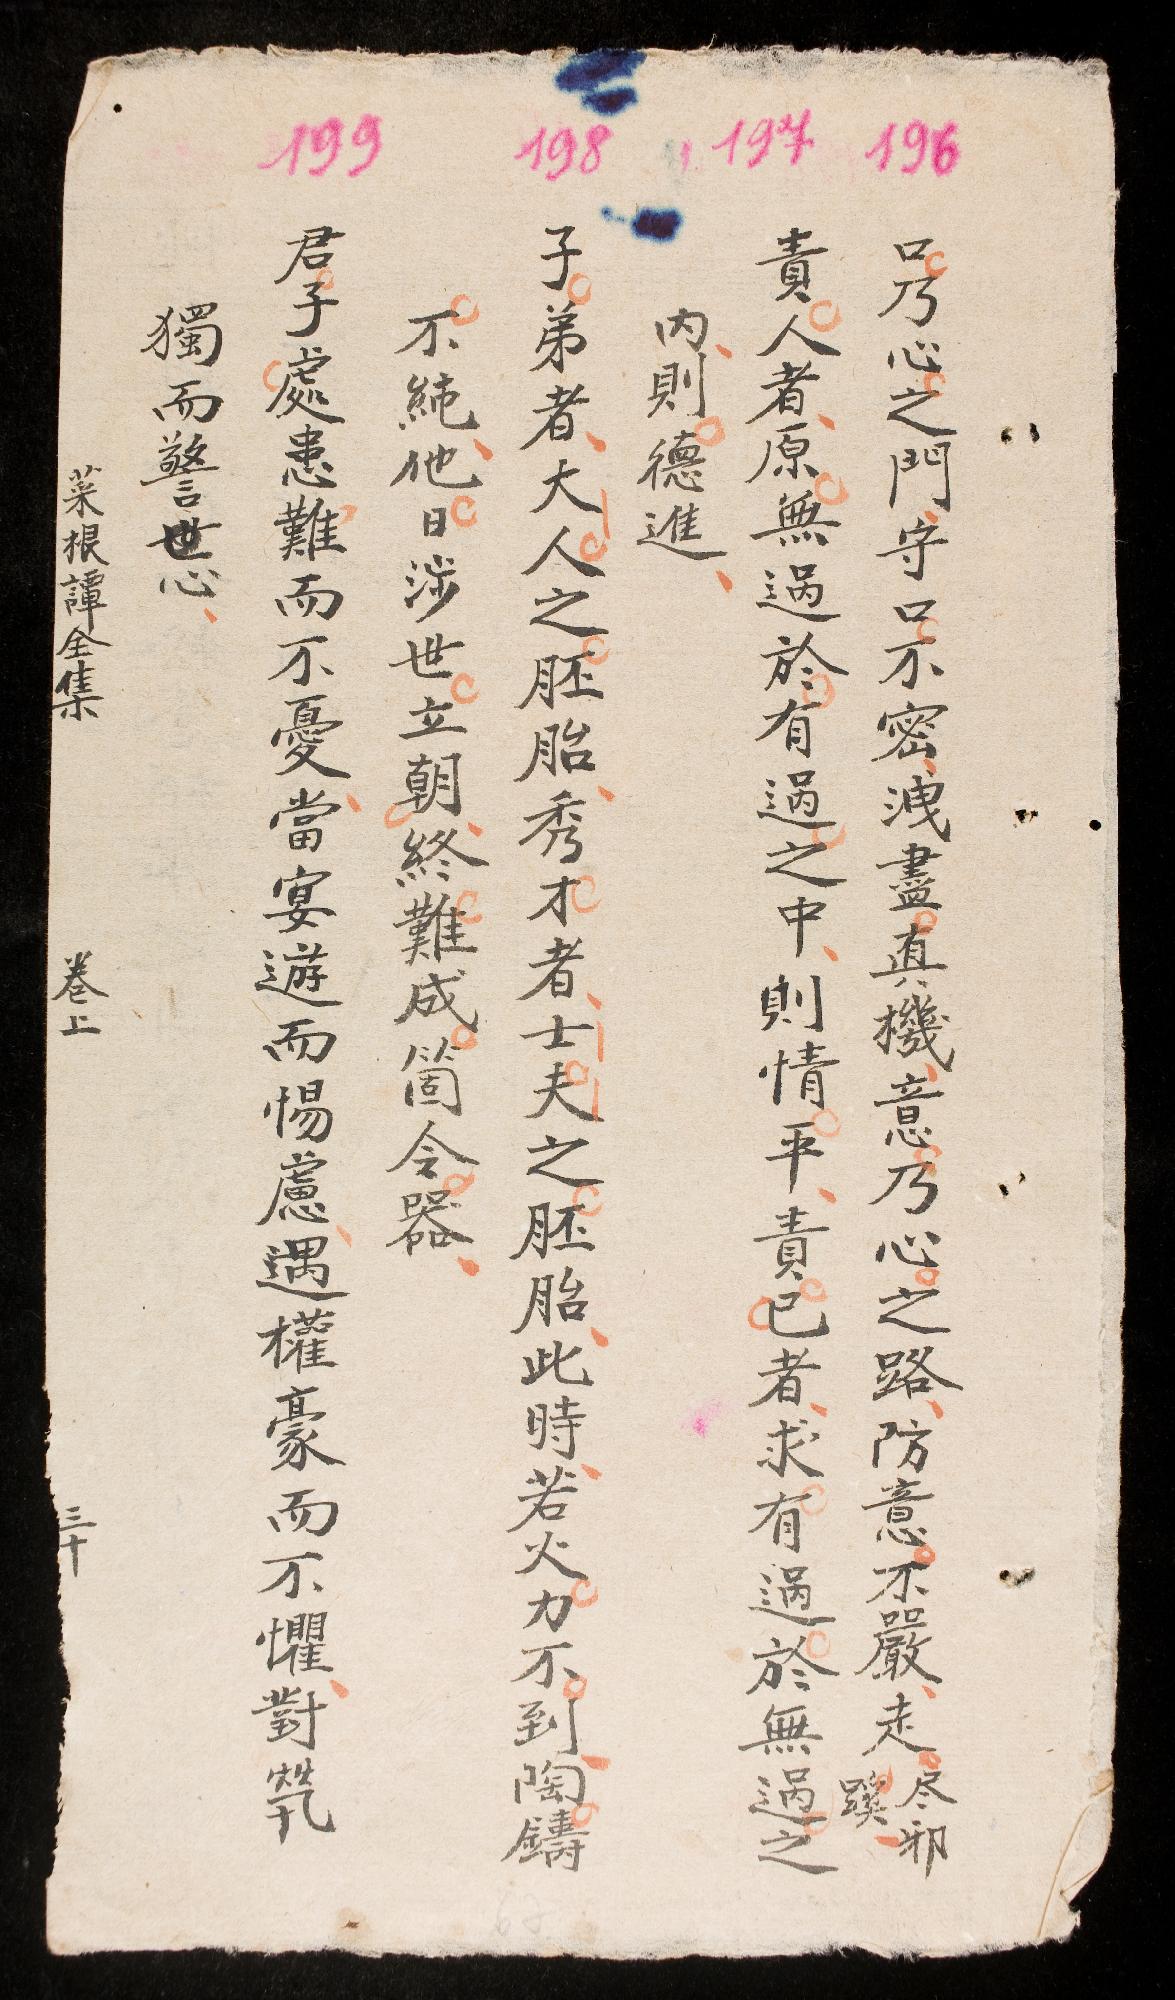 196
口乃心之門守口不密洩盡真機意乃心之路防意不嚴走尽邪蹊
197
責人者原無過於有過之中則情平責已者求有過於無過之
內則德進
198
子弟者大人之胚胎秀才者士夫之胚胎此時若火力不到陶鑄
不純他日涉世立朝終難成箇令器
199
君子處患難而不憂當宴遊而惕慮遇權豪而不懼對煢
獨而警世心
菜根譚全集 卷上 三十